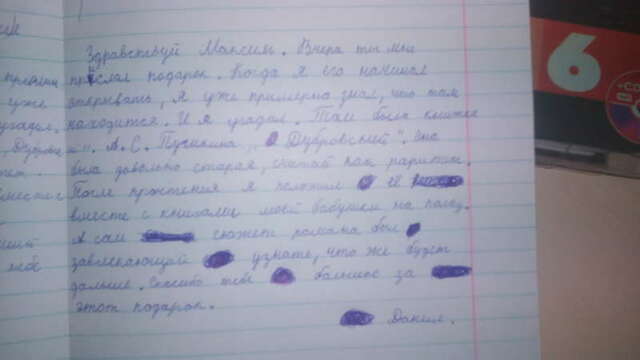 Здравствуй Максим. Вчера ты мне
прислал подарок. Когда я его начинал
открывать, я уже примерно знал, что там
находится. И я угадал. Там была книжка
А. С. Пушкина, "Дубровский". Она
была довольно старая, считай как раритет.
После прочтения я положил её
вместе с книгами моей бабушки на полку.
А сам сюжет романа был
завлекающий узнать, что же будет
дальше. Спасибо тебе большое за
этот подарок.
Данил.
6